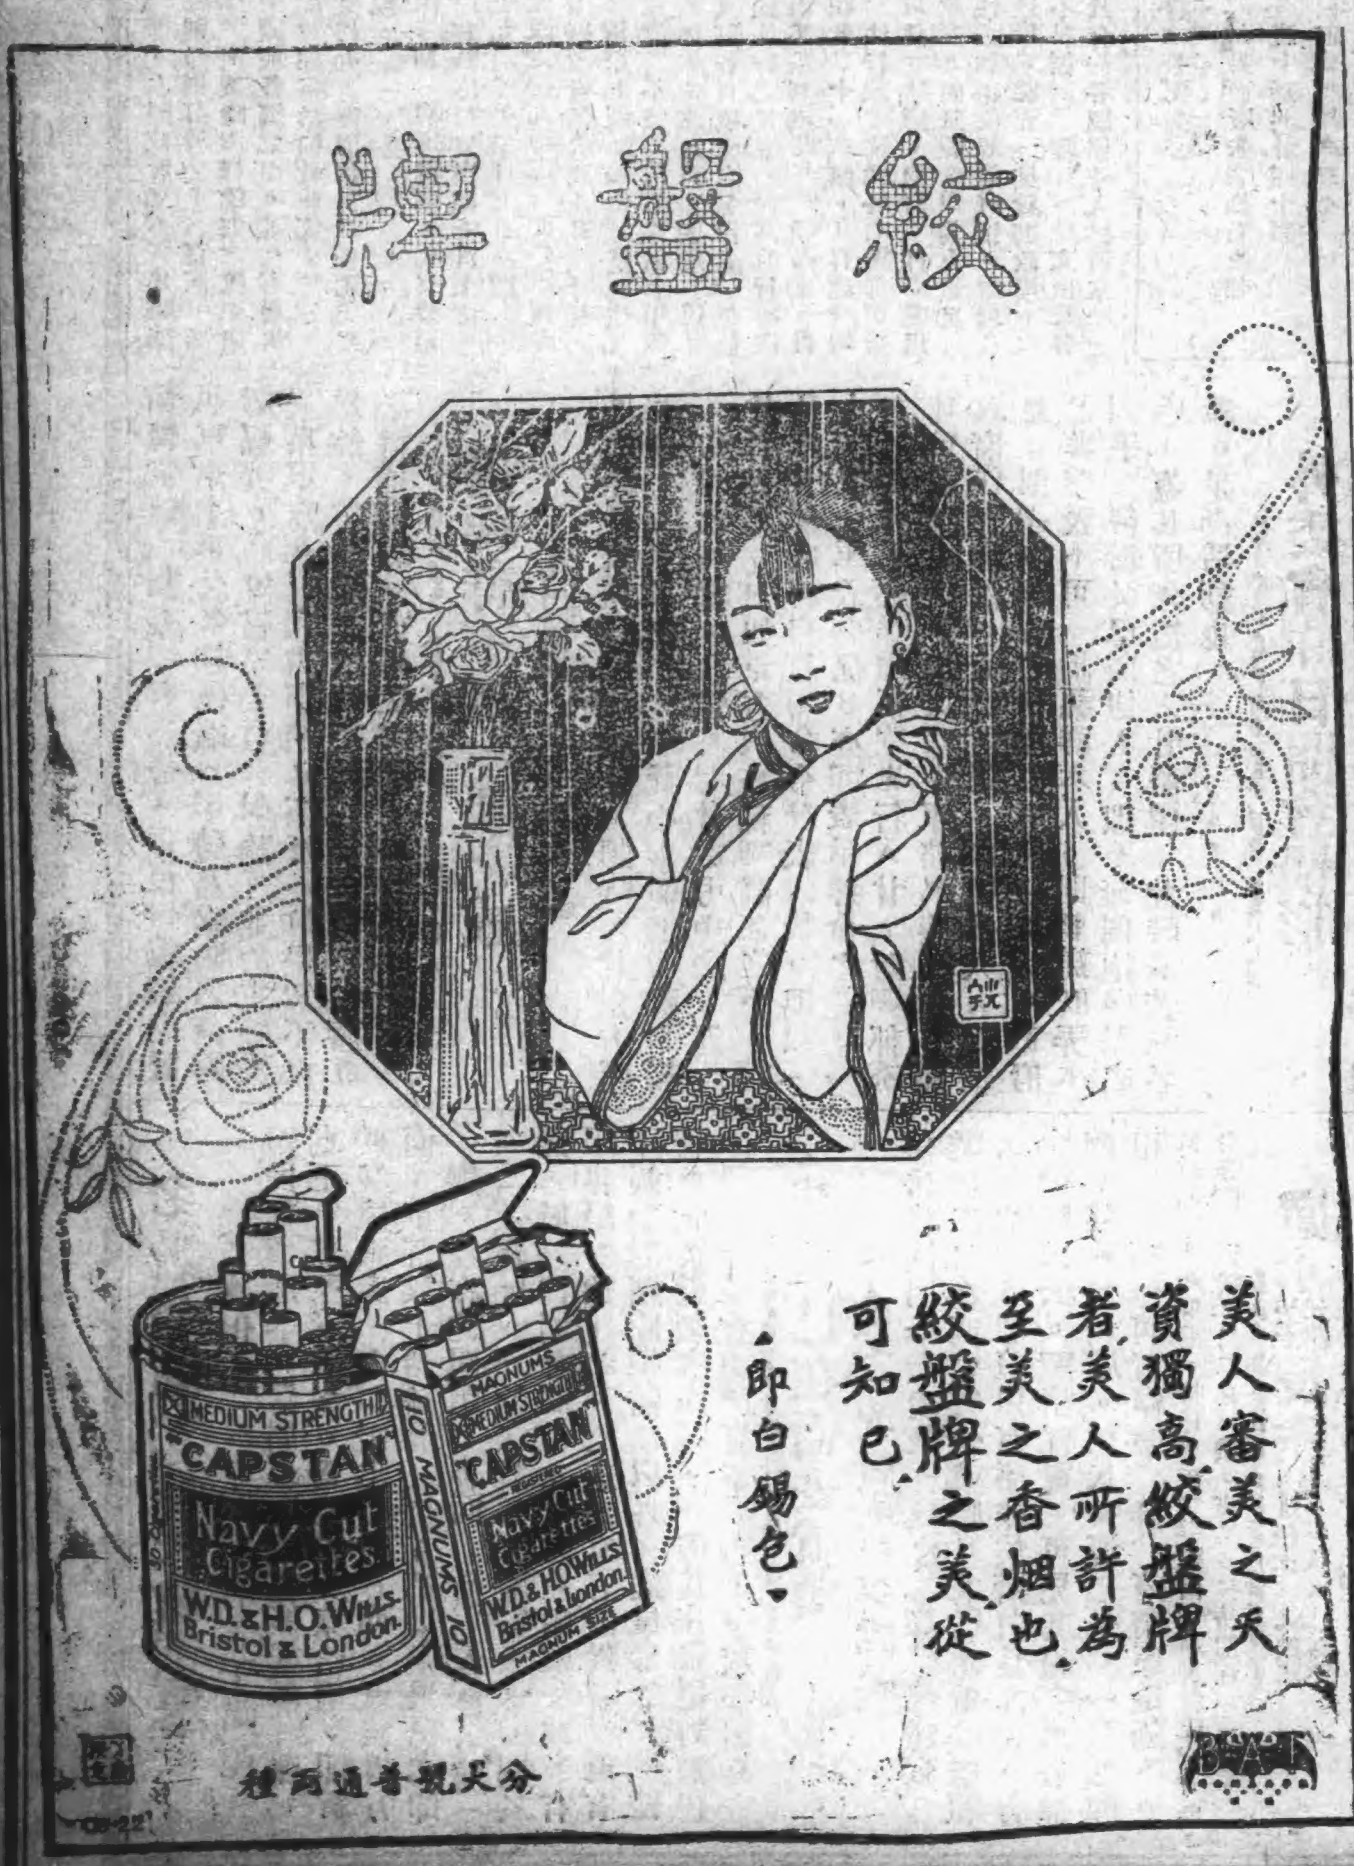 絞盤牌
美人審美之天
資獨高絞盤牌
者美人所許為
至美之香烟也
絞盤牌之美從
可知已
即白錫包
MEDIUM STRENGTH
"CAPSTAN"
Navy Cut
Cigarettes.
W.D. & H.O. WILLS.
Bristol & London.
MAGNUMS
MEDIUM STRENGTH
"CAPSTAN"
Navy Cut
Cigarettes
W.D. & H.O. WILLS.
Bristol & London.
MAGNUM SIZE
10 MAGNUMS 10
分大號普通兩種
BAT